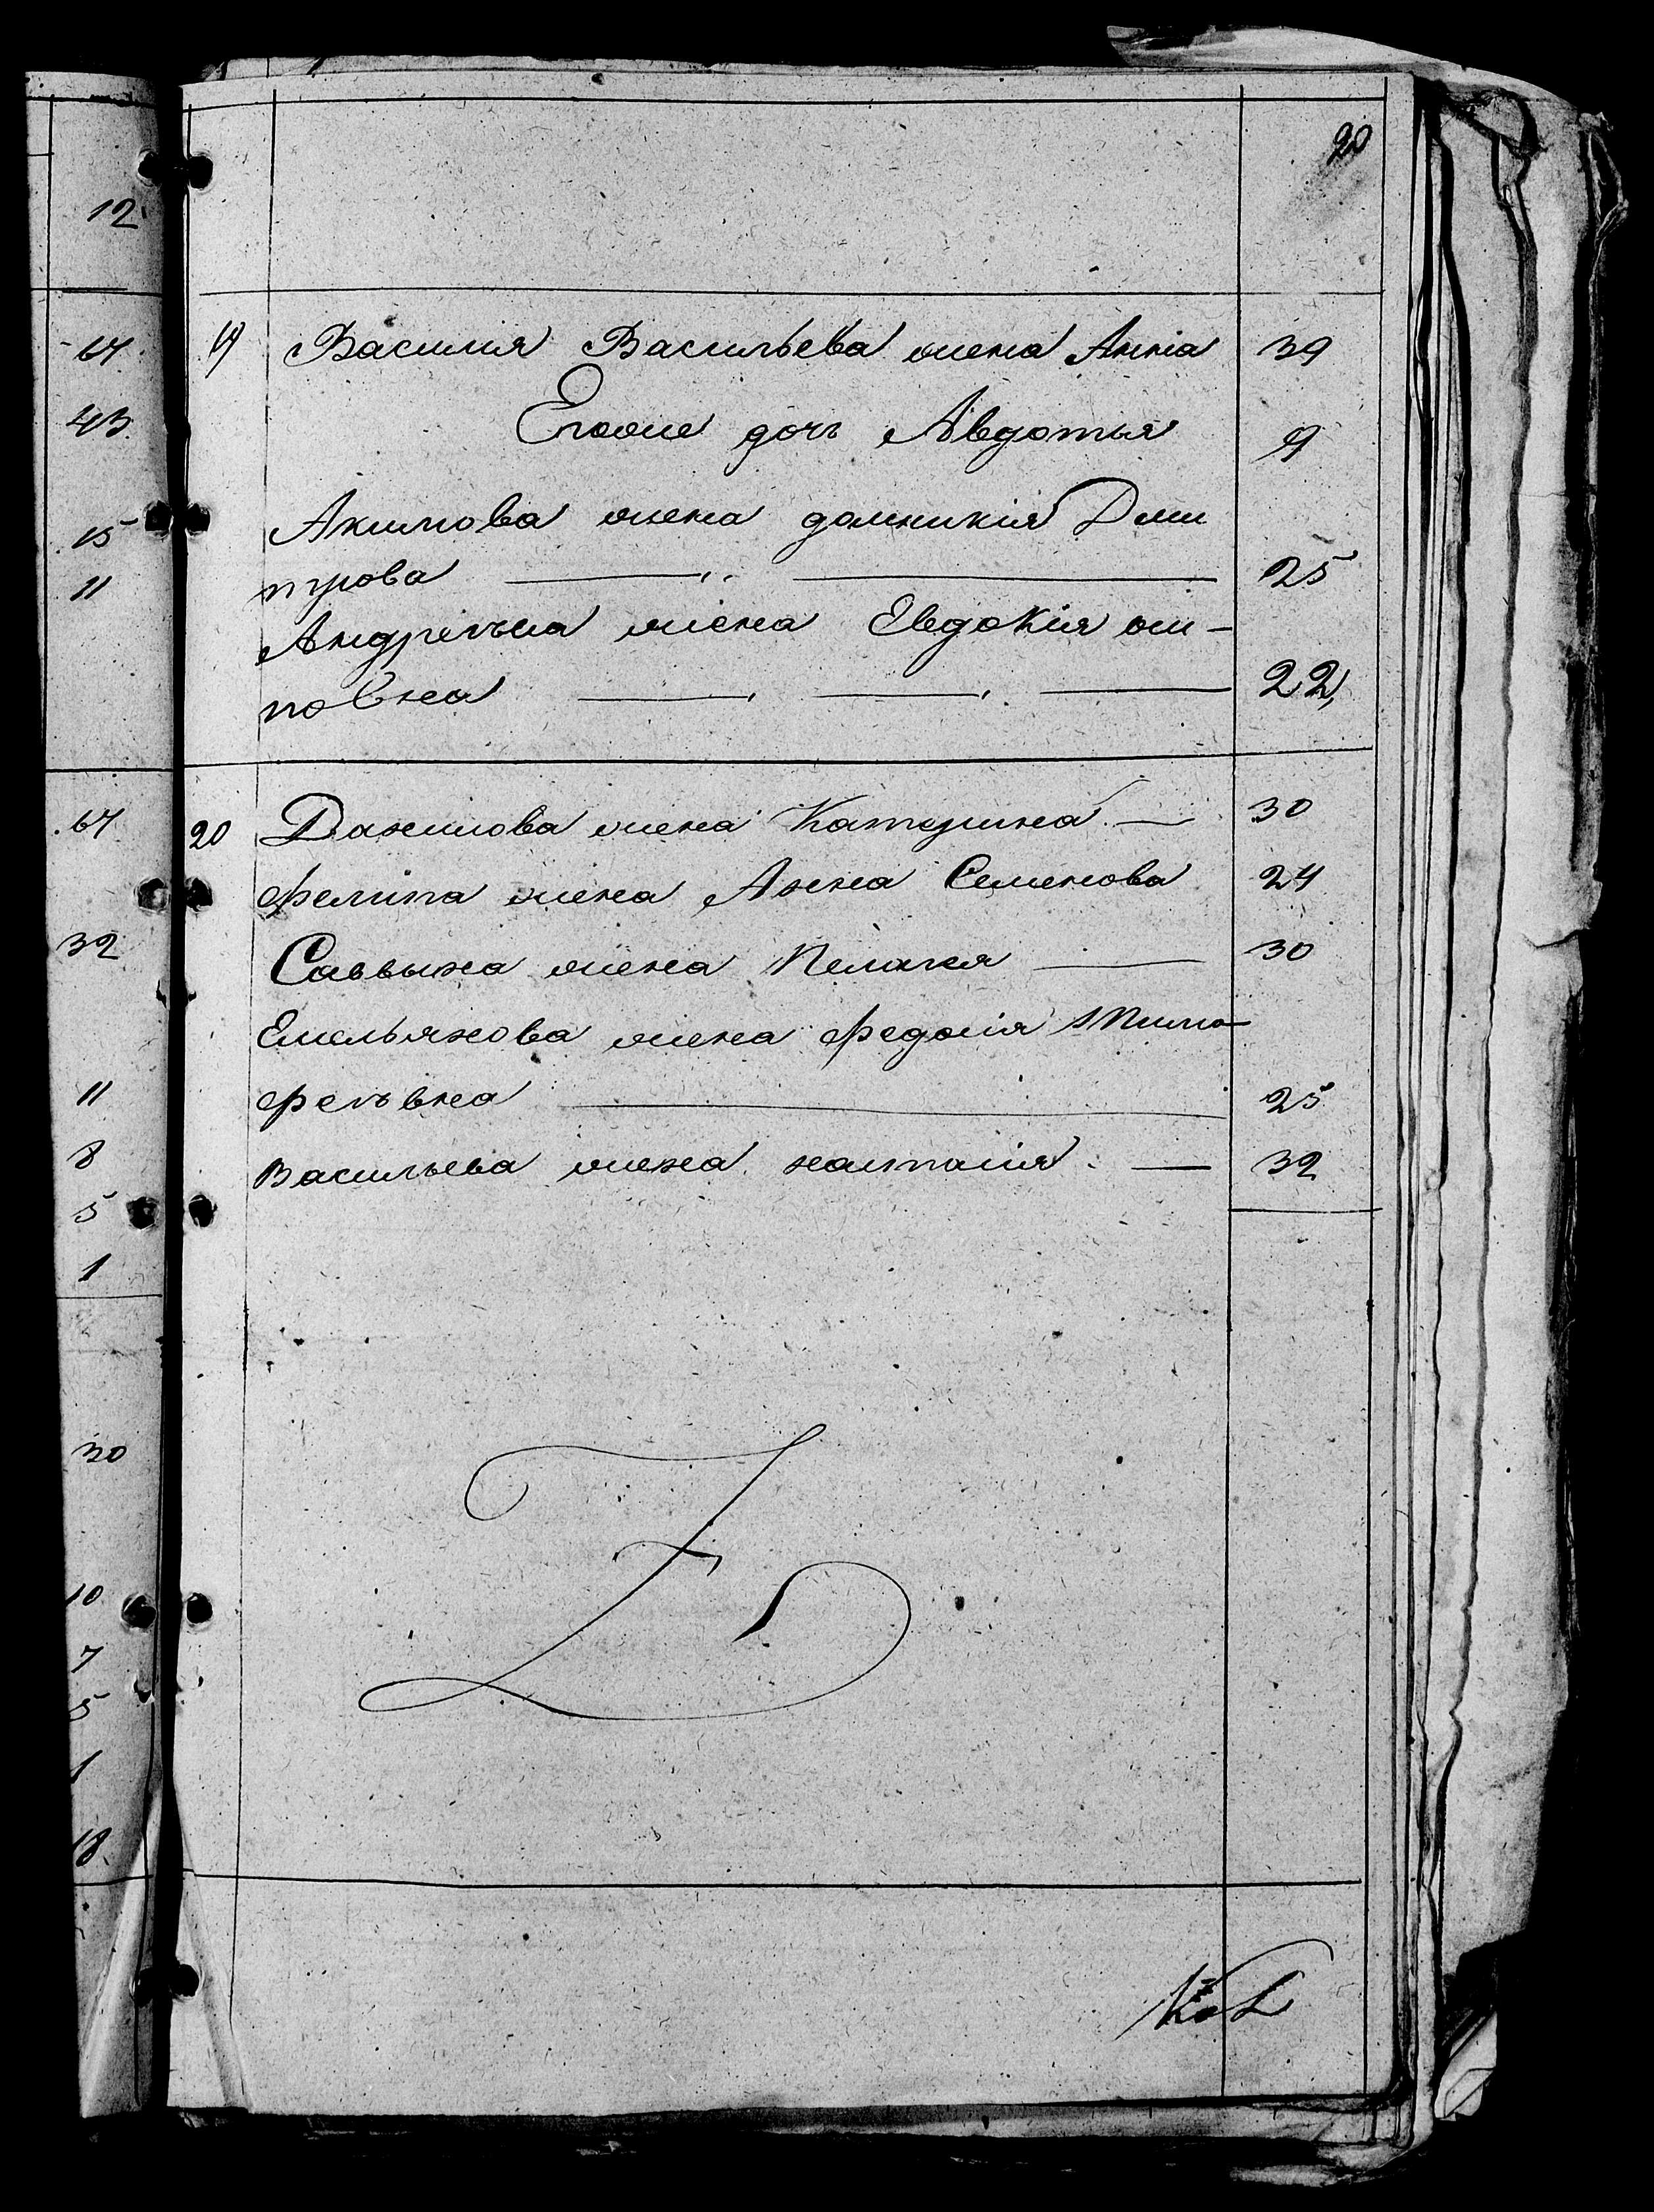 20
12
64
43
15
11
64
32
11
8
5
1
30
10
7
5
1
18
19 Василия Васильева жена Анна 39
Егоже дочь Авдотья 9
Акимова жена домникия Дми
трова 25
Андреева жена Евдокия оси-
повна 22,
20 Данилова жена Катерина — 30
филипа жена Анна Семенова 24
Саввына жена Пелагея — 30
Емельянова жена федосия Тимо-
феевна 25
Васильева жена настасия — 32